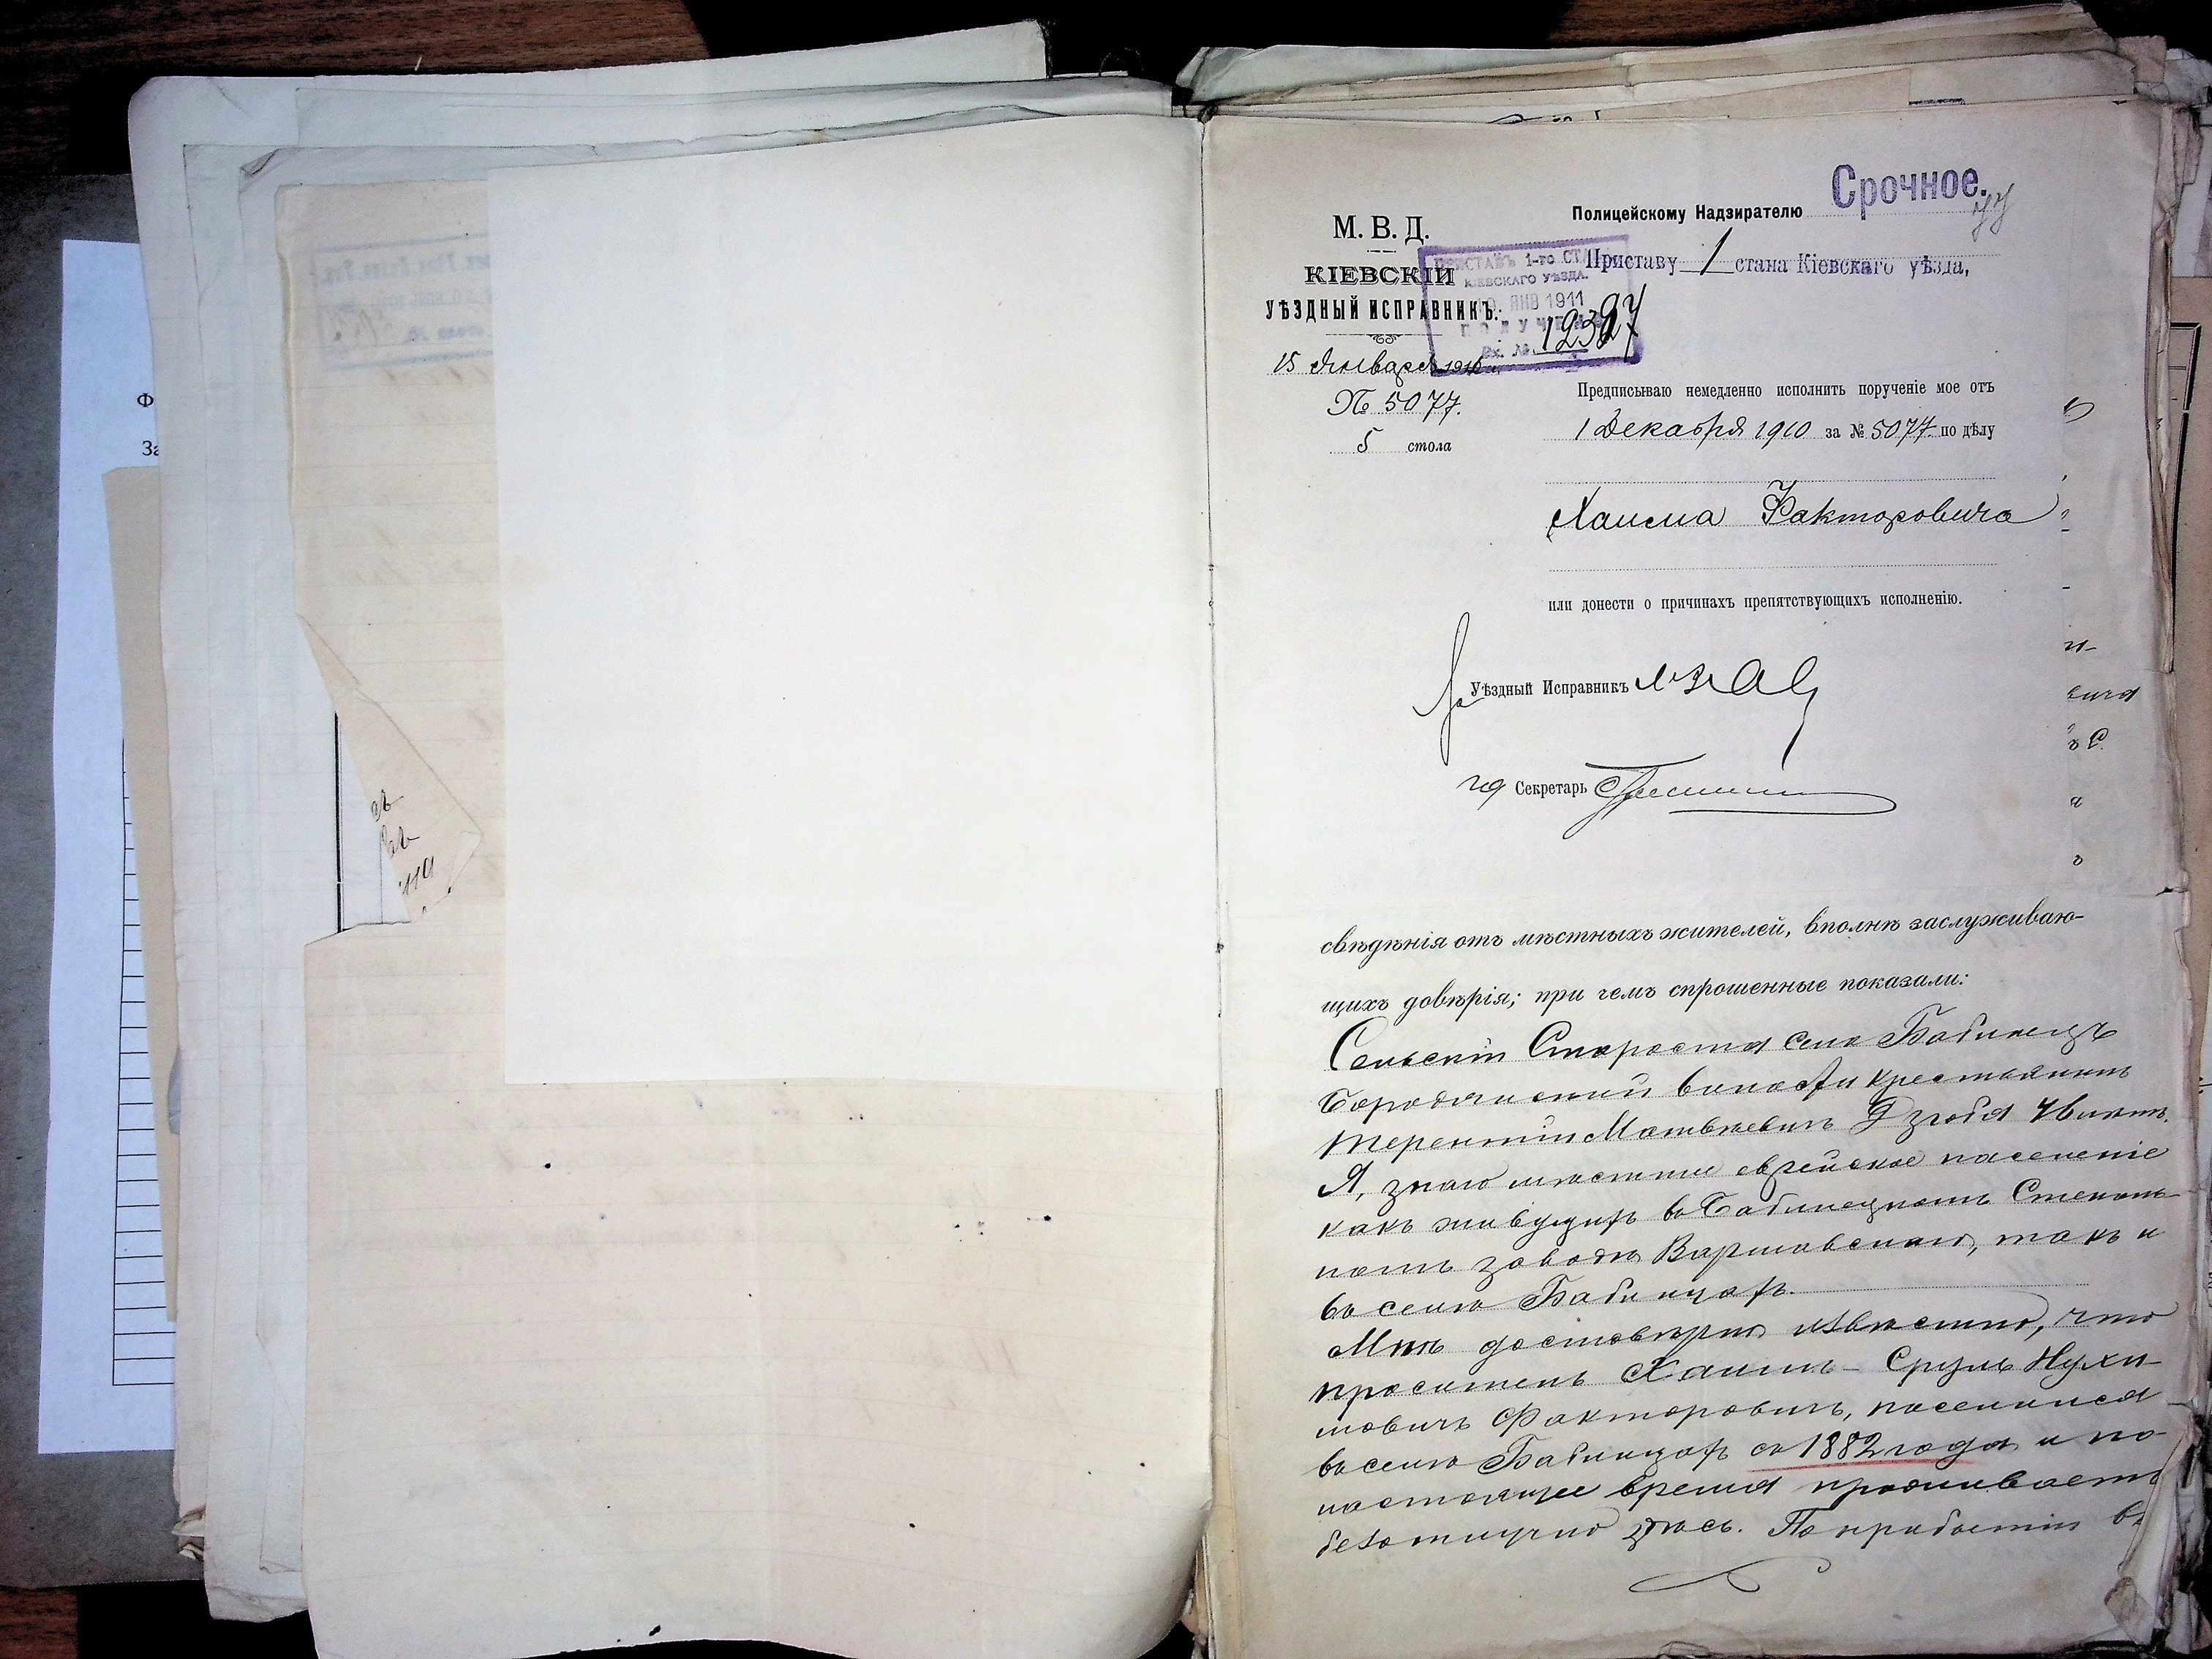 Срочное.
Полицейскому Надзирателю
Приставу 1 стана Кіевскаго уѣзда,
М. В. Д.
КІЕВСКІЙ
УѢЗДНЫЙ ИСПРАВНИКЪ.
ПРИСТАВЪ 1-го СТ
КІЕВСКАГО УѢЗДА.
ЯНВ 1911
15 Января
№ 5077.
5 стола
Предписываю немедленно исполнить порученіе мое отъ
1 Декабря 1910 за № 5077 по дѣлу
Хаима Факторовича
или донести о причинахъ препятствующихъ исполненію.
Уѣздный Исправникъ
Секретарь
свѣдѣнія отъ мѣстныхъ жителей, вполнѣ заслуживаю-
щихъ довѣрія; при чемъ спрошенные показали:
Сельскій Староста села Бабинецъ
Бородянской волости крестьянинъ
Терентій Матвѣевичъ
Я, знаю мѣстное еврейское населеніе
какъ живущихъ въ Бабинецкомъ Стеколь-
номъ заводѣ Варшавскаго, такъ и
въ селѣ Бабинцахъ.
Мнѣ достовѣрно извѣстно, что
проситель Хаимъ-Сруль Нухи-
мовичъ Факторовичъ, поселился
въ селѣ Бабинцахъ съ 1882 года и по
настоящее время проживаетъ
безотлучно здѣсь. По прибытіи въ